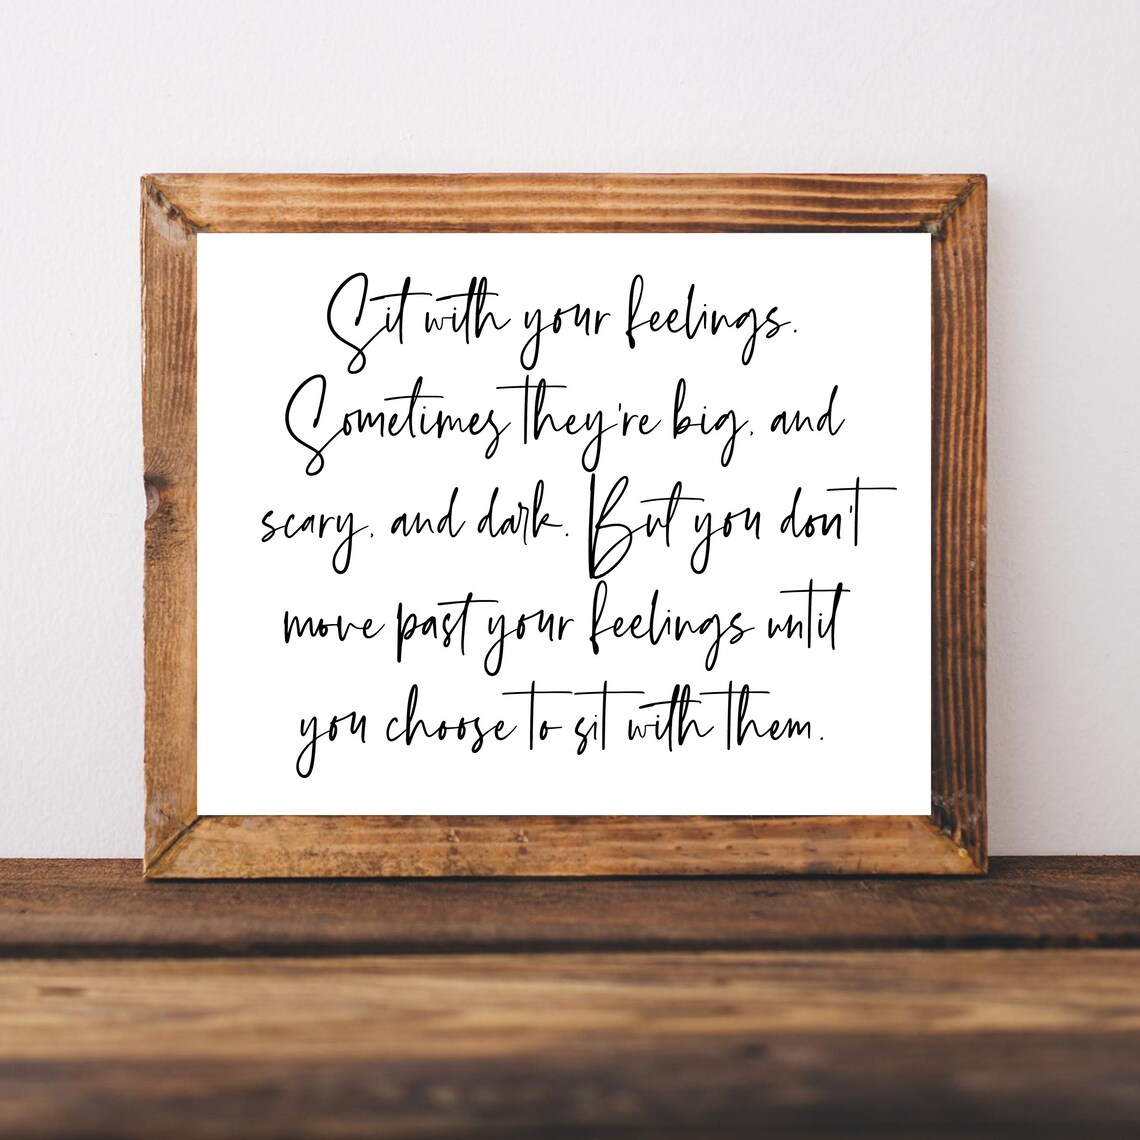 Sit with your feelings.
Sometimes they're big, and
scary, and dark. But you don't
move past your feelings until
you choose to sit with them.